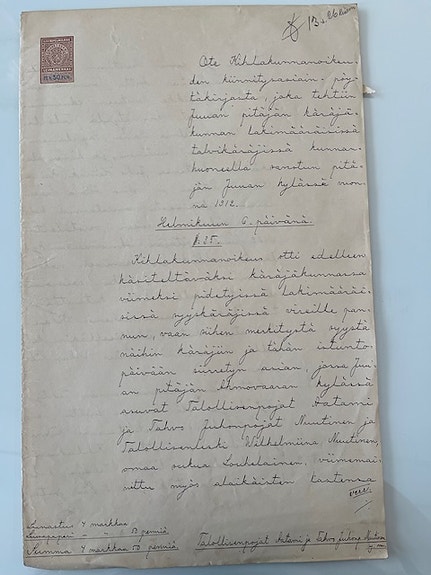 13 s.
Ote Kihlakunnanoikeu-
den kiinnitysasiain pöy-
täkirjasta, joka tehtiin
Juuan pitäjän käräjä-
kunnan lakimääräisissä
talvikäräjissä kunnan-
huoneella sanotun pitä-
jän Juuan kylässä vuon-
na 1912.
Helmikuun 6. päivänä.
§. 25.
Kihlakunnanoikeus otti edelleen
käsiteltäväksi käräjäkunnassa
viimeksi pidetyissä lakimääräi-
sissä syyskäräjissä vireille pan-
nun, vaan siihen merkitystä syystä
näihin käräjiin ja tähän istunto-
päivään siirretyn asian, jossa Juu-
an pitäjän kylässä
asuvat Talollisenpojat Aatami
ja Tahvo Juhonpojat Nuutinen ja
Talollisenleski Wilhelmiina Nuutinen,
omaa sukua Louhelainen, viimemai-
nittu myös alaikäisten lastensa
Lunastus 4 markkaa
Leimapaperi 50 penniä
Summa 4 markkaa 50 penniä
Talollisenpojat Aatami ja Tahvo Juhonp. Nuutinen